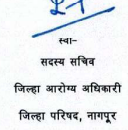 स्वा-
सदस्य सचिव
जिल्हा आरोग्य अधिकारी
जिल्हा परिषद, नागपूर